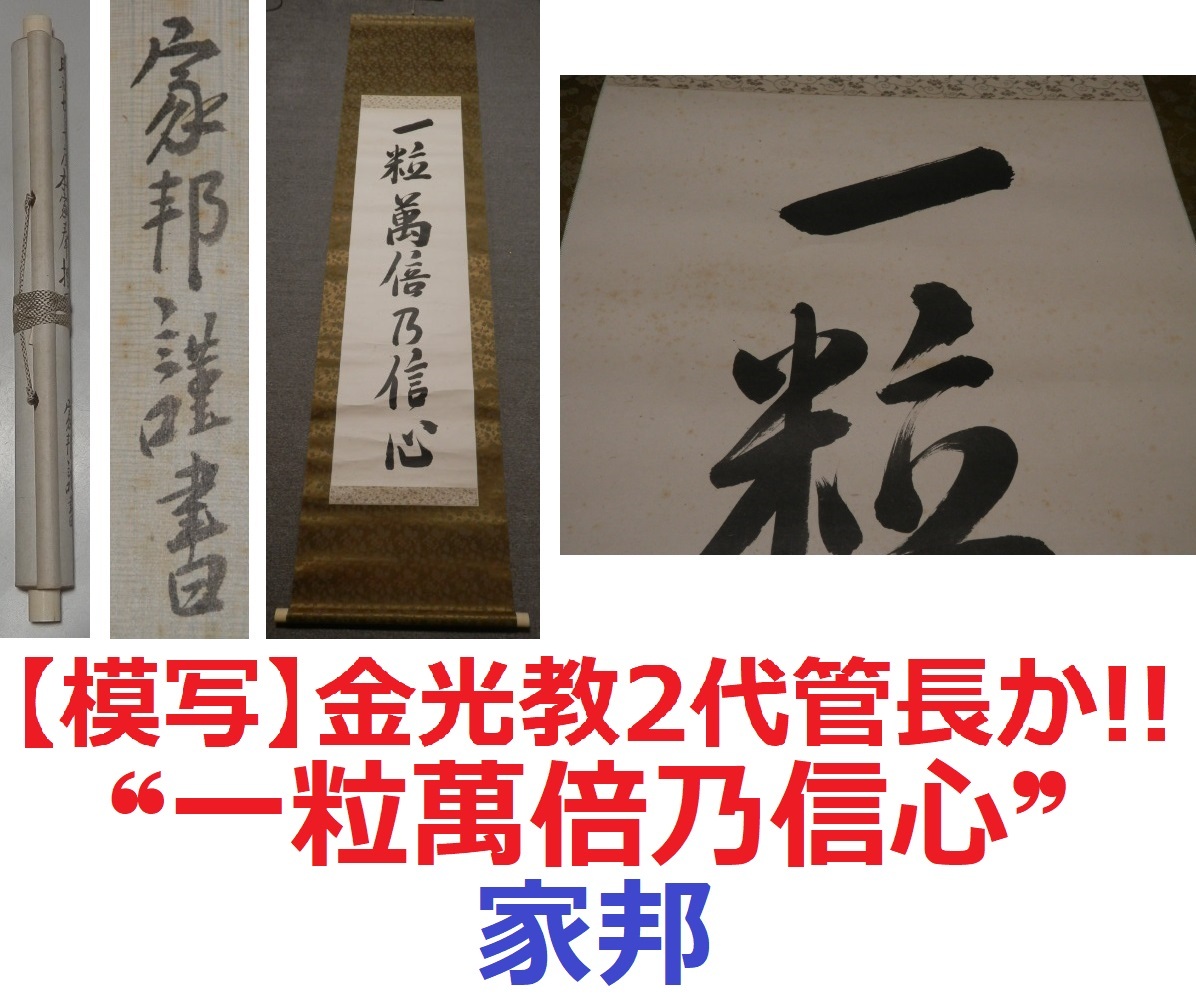 家邦謹書
一粒萬倍乃信心
一粒
【模写】金光教2代管長か!!
“一粒萬倍乃信心”
家邦